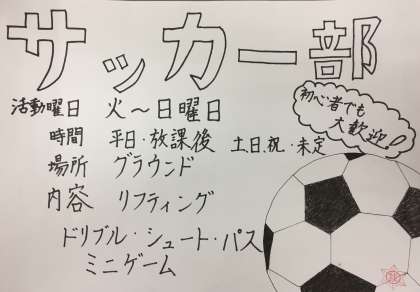 サッカー部
活動曜日 火〜日曜日
初心者でも
大歓迎!
時間 平日・放課後 土、日、祝・未定
場所 グラウンド
内容 リフティング
ドリブル・シュート・パス
ミニゲーム